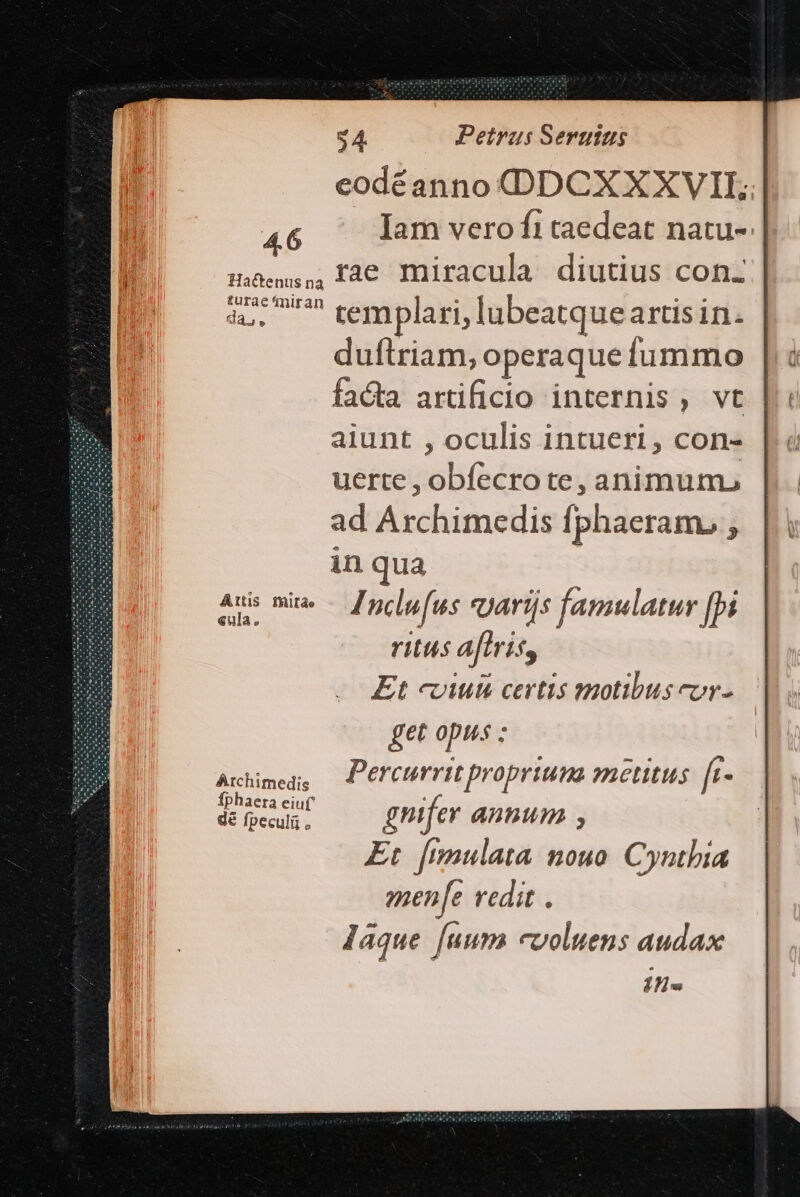 54 Petrus Seruius
eodē anno CIƆDCXXXVII.
46
Iam vero ſi taedeat natu-
Hactenus na
turae miran
da.
rae miracula diutius con-
templari, lubeatque artis in-
duſtriam, operaque ſummo
facta artificio internis, vt
aiunt, oculis intueri, con-
uerte, obſecro te, animum
ad Archimedis ſphaeram,
in qua
Artis mira
cula.
Incluſus varijs famulatur ſpi
ritus aſtris,
Et viuū certis motibus vr-
get opus:
Archimedis
ſphaera eiuſ
dē ſpeculū.
Percurrit proprium mētitus ſi-
gnifer annum,
Et ſimulata nouo Cynthia
menſe redit.
Iāque ſuum voluens audax
in-